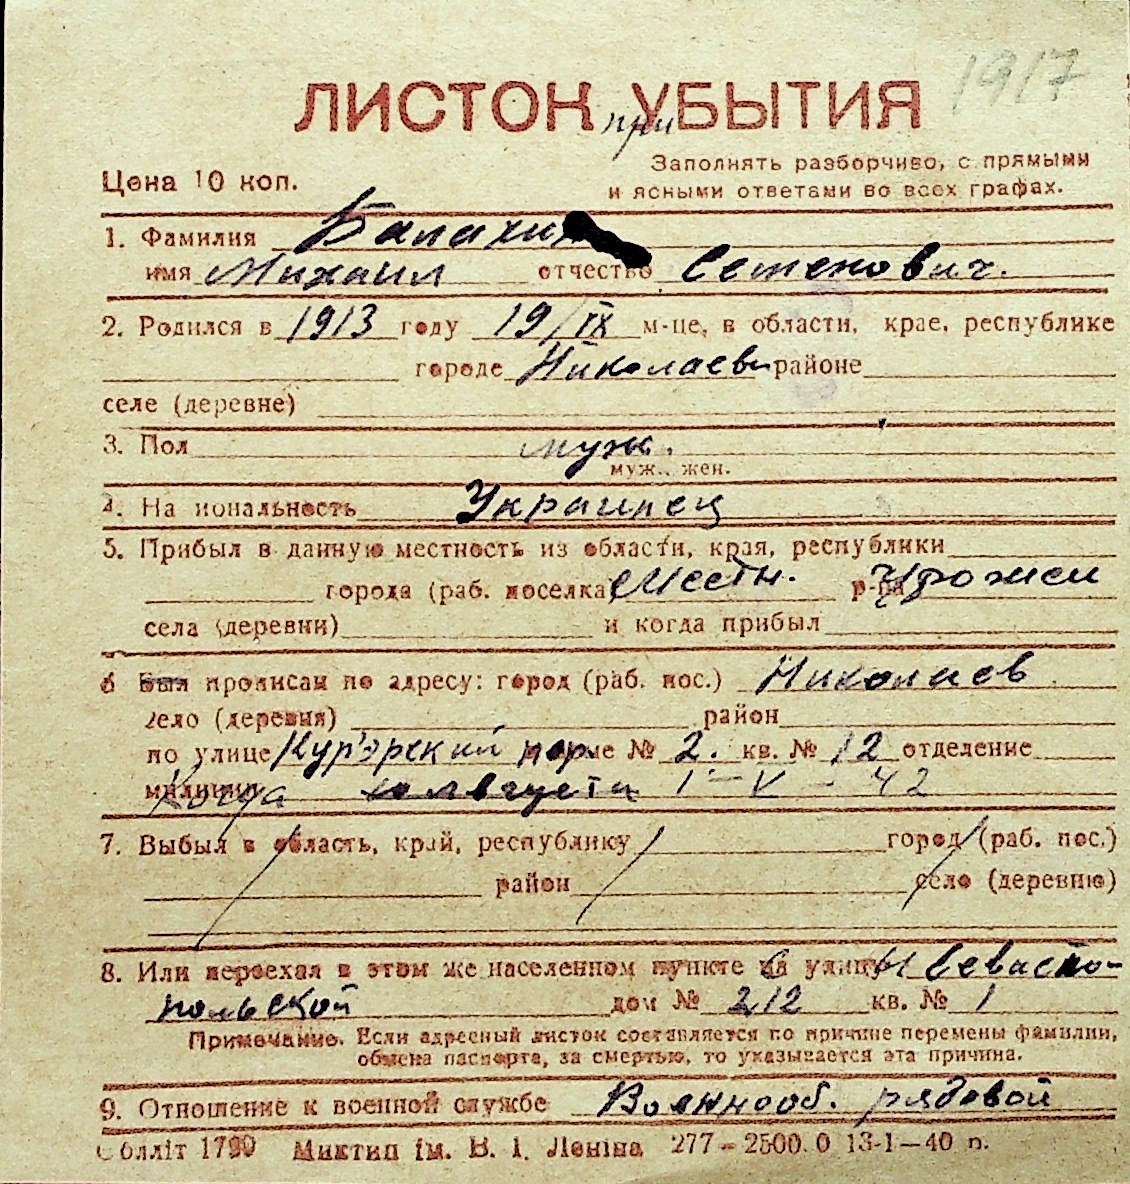 1917
ЛИСТОК УБЫТИЯ
при
Заполнять разборчиво, с прямыми
Цена 10 коп. и ясными ответами во всех графах.
1. Фамилия
имя Михаил отчество Семенович.
2. Родился в 1913 году 19/IX м-це, в области, крае, республике
городе Николаев районе
селе (деревне)
3. Пол муж.
муж., жен.
4. На иональность Украинец
5. Прибыл в данную местность из области, края, республики
города (раб. поселка) Местн. р-на Урожен
села (деревни) и когда прибыл
6 Был прописан по адресу: город (раб. пос.) Николаев
село (деревня) район
по улице Кур'эрский пер. № 2. кв. № 12 отделение
милиции Когда августа 1 – V – 42
7. Выбыл в область, край, республику город (раб. пос.)
район село (деревню)
8. Или переехал в этом же населенном пункте на улицу С Севасто-
польской дом № 212 кв. № 1
Примечание. Если адресный листок составляется по причине перемены фамилии,
обмена паспорта, за смертью, то указывается эта причина.
9. Отношение к военной службе Военнооб. рядовой
Обллiт 1790 Миктип iм. В. I. Ленiна 277 – 2500.0 13-1—40 п.